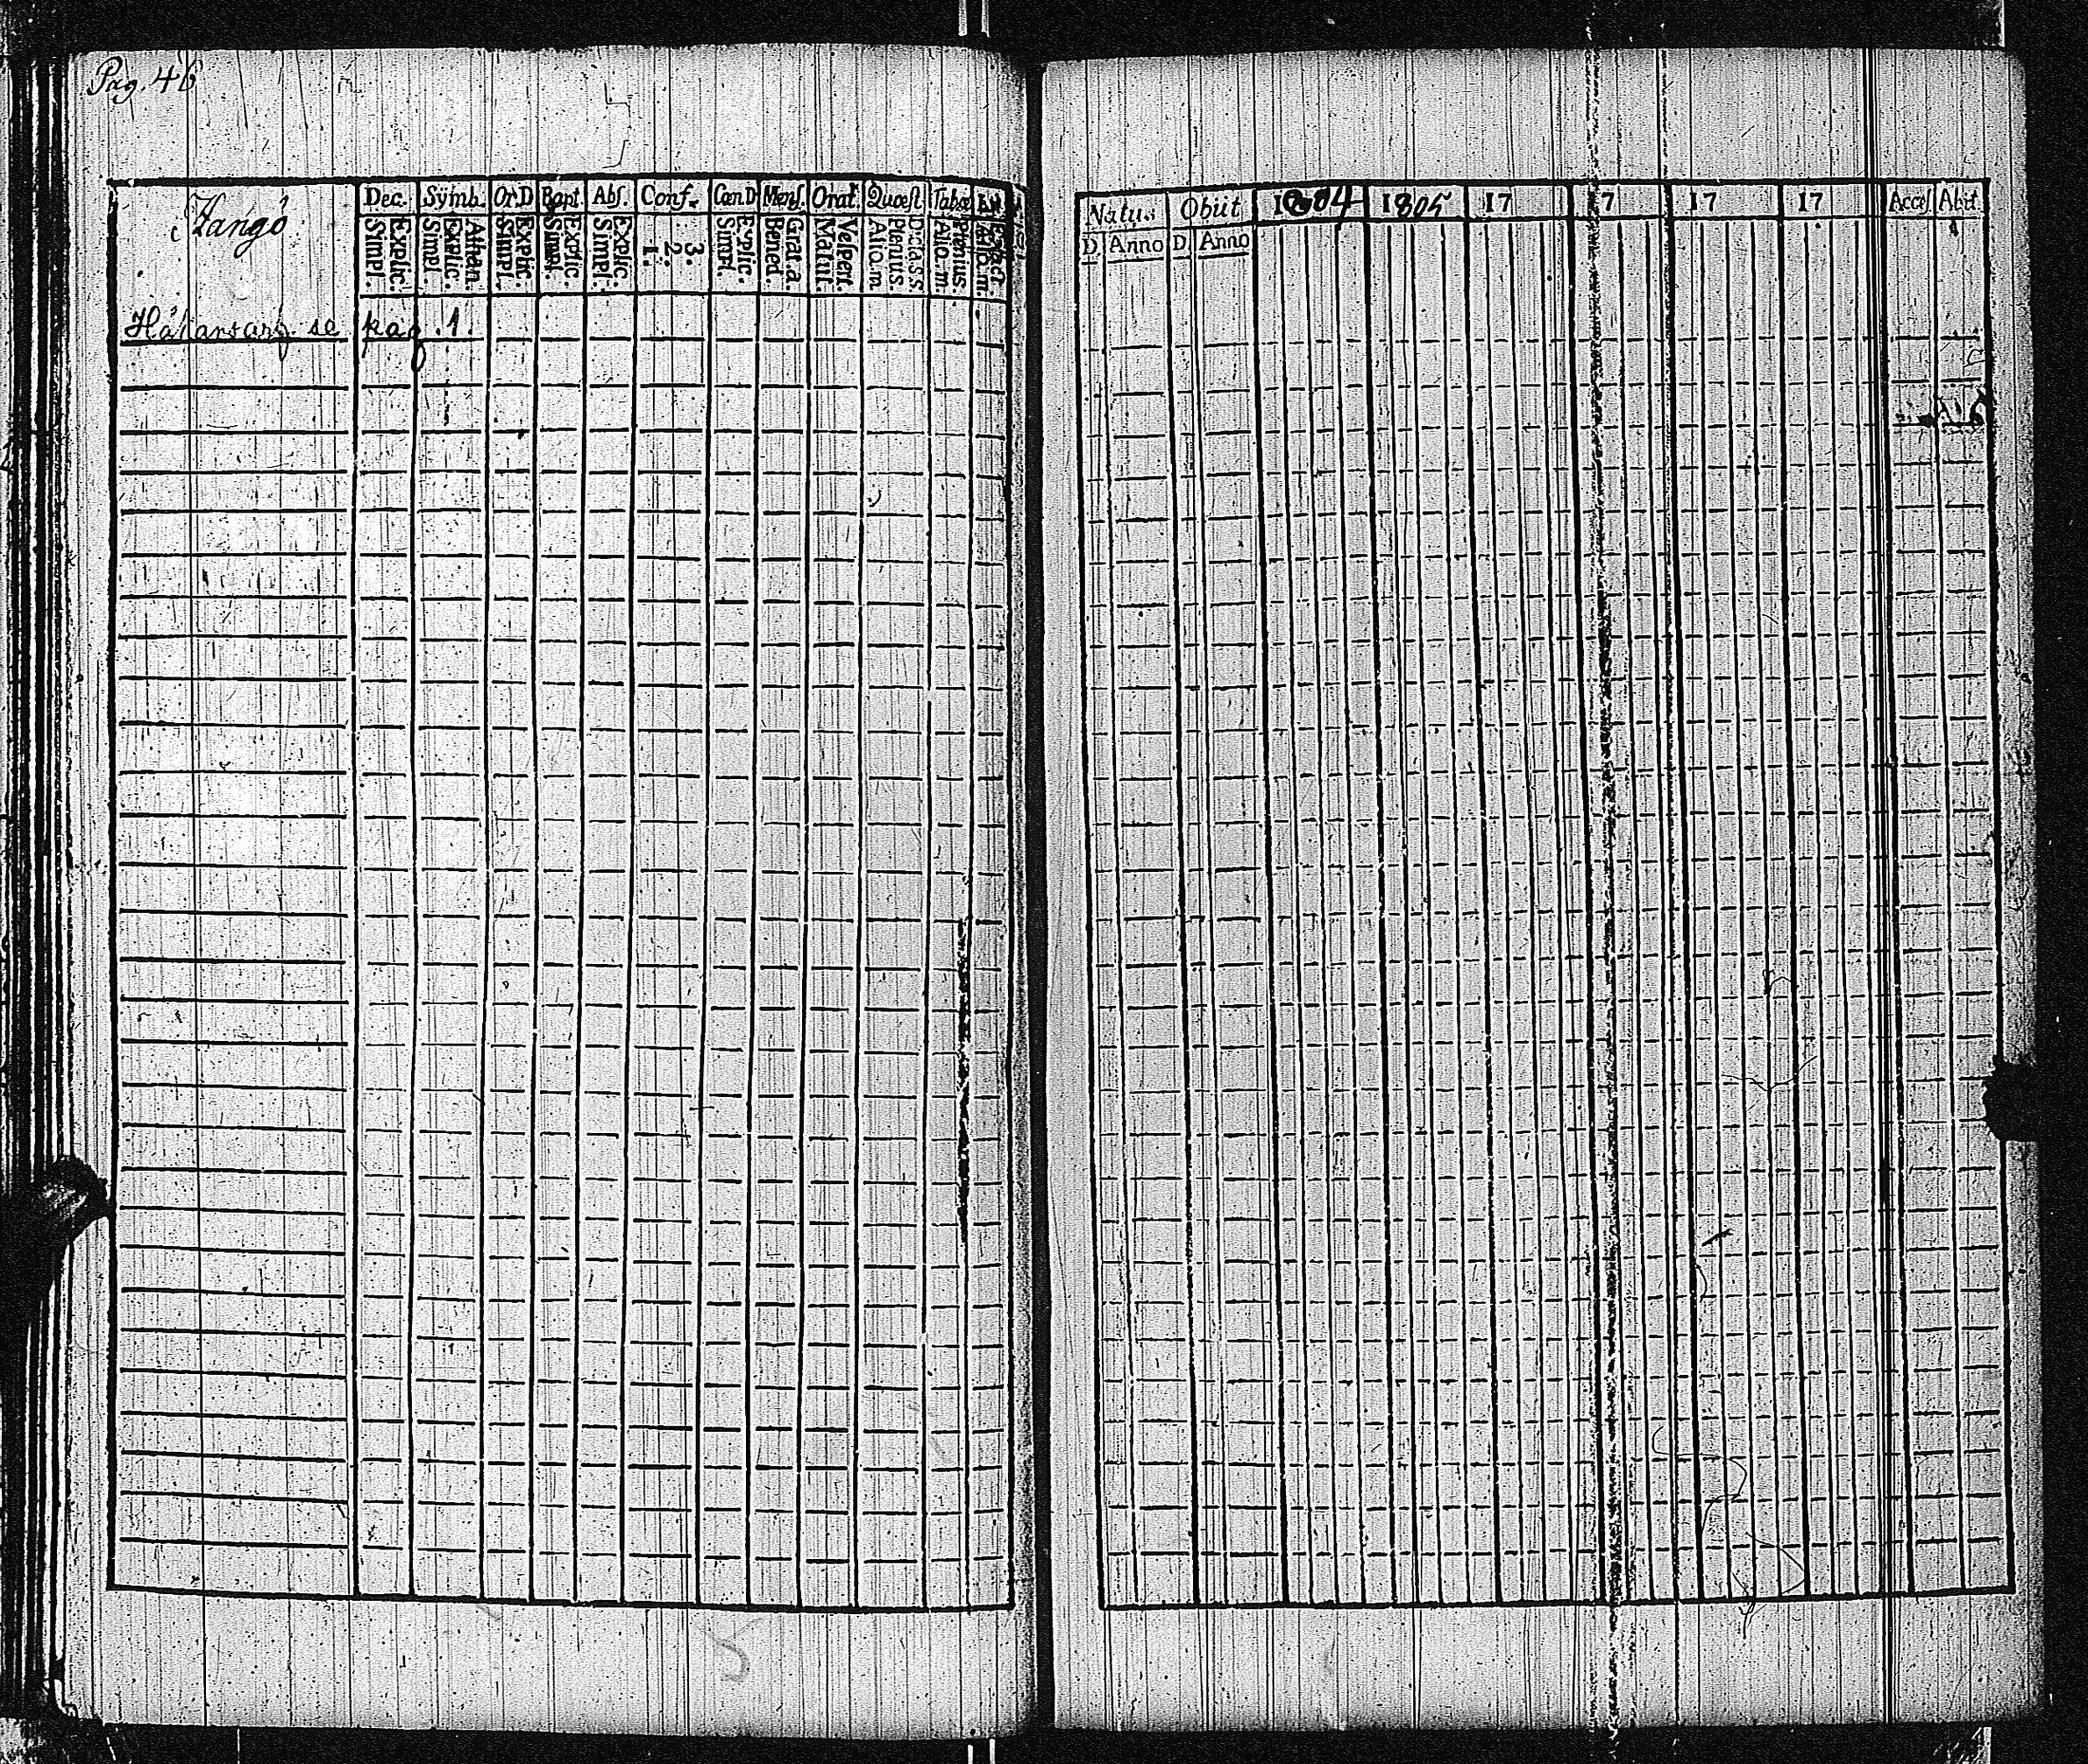 Pag. 46
Vangö
Dec. Sÿmb. Or.D Bapt. Abs. Conf. Cœn D Mens. Orat. Quœst. Tabœ
Explic. Simpl. Athan. Explic. Simpl. Explic. Simpl. Explic. Simpl. Explic. Simpl. 3. 2. 1. Explic. Simpl. Grat. a. Bened. Vespert. Matut. Dictas.s. Plenius. Alio.m Plenius. Alio.m
se pag. 1.
Natus Obiit 1804 1805 17 7 17 17 Acces. Abit.
D Anno D Anno